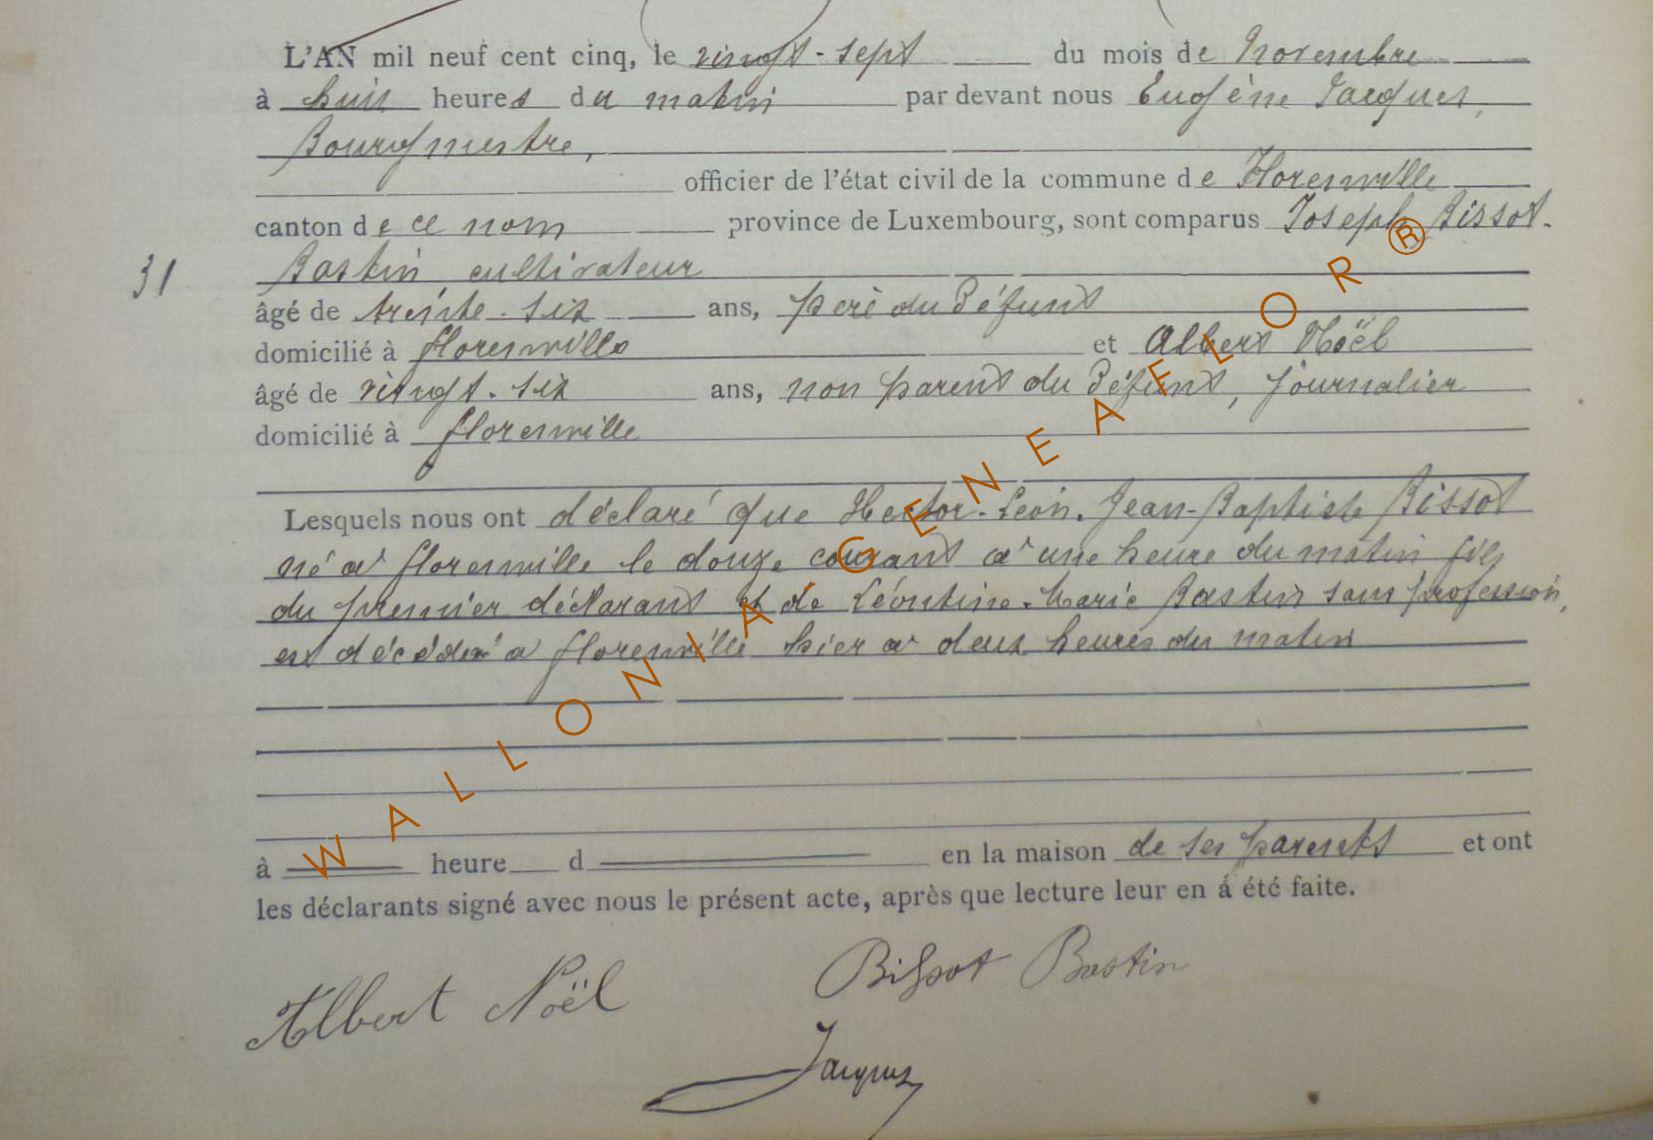 L'AN mil neuf cent cinq, le vingt-sept du mois de Novembre
à huit heures du matin par devant nous Eugène Jacques,
Bourgmestre,
officier de l'état civil de la commune de Florenville
canton de ce nom province de Luxembourg, sont comparus Joseph Bissot-
31 Bastin, cultivateur
âgé de trente-six ans, père du défunt
domicilié à florenville et Albert Noël
âgé de vingt-six ans, non parent du défunt, journalier
domicilié à florenville
Lesquels nous ont déclaré que Hector-Léon-Jean-Baptiste Bissot
né à florenville le douze courant à une heure du matin fils
du premier déclarant et de Léontine-Marie Bastin sans profession,
est décédé à florenville hier à deux heures du matin
à heure d en la maison de ses parents et ont
les déclarants signé avec nous le présent acte, après que lecture leur en a été faite.
Albert Noël Bissot Bastin
Jacques
WALLONIA-GENEAFELOR®